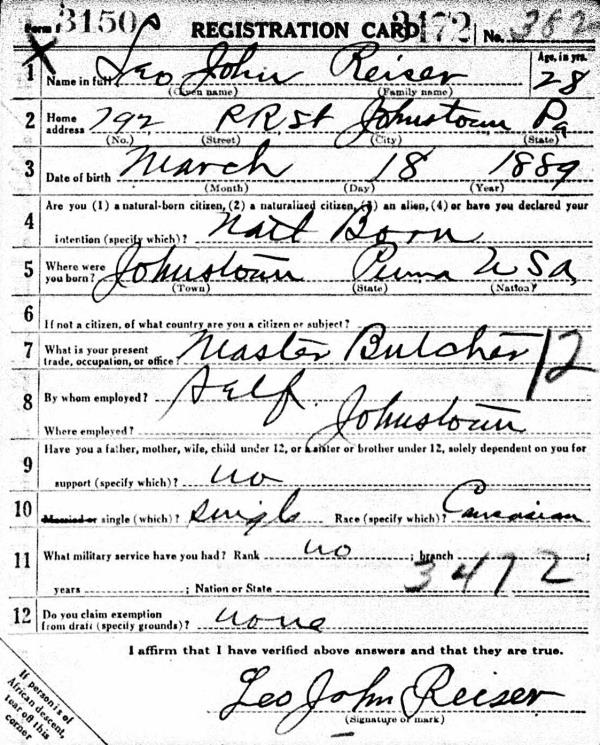 Form 3150 REGISTRATION CARD 3472 No. 362
Age, in yrs.
1 Name in full Leo John Reiser 28
(Given name) (Family name)
2 Home address 792 RR St Johnstown Pa
(No.) (Street) (City) (State)
3 Date of birth March 18 1889
(Month) (Day) (Year)
4 Are you (1) a natural-born citizen, (2) a naturalized citizen, (3) an alien, (4) or have you declared your
intention (specify which)? Natl Born
5 Where were you born? Johnstown Penna USA,
(Town) (State) (Nation)
6 If not a citizen, of what country are you a citizen or subject?
7 What is your present trade, occupation, or office? Master Butcher 12
8 By whom employed? Self.
Where employed? Johnstown
9 Have you a father, mother, wife, child under 12, or a sister or brother under 12, solely dependent on you for
support (specify which)? no
10 Married or single (which)? single Race (specify which)? Caucasian
11 What military service have you had? Rank no ; branch ;
years ; Nation or State 3472
12 Do you claim exemption from draft (specify grounds)? none
I affirm that I have verified above answers and that they are true.
Leo John Reiser
(Signature or mark)
If person is of
African descent,
tear off this
corner